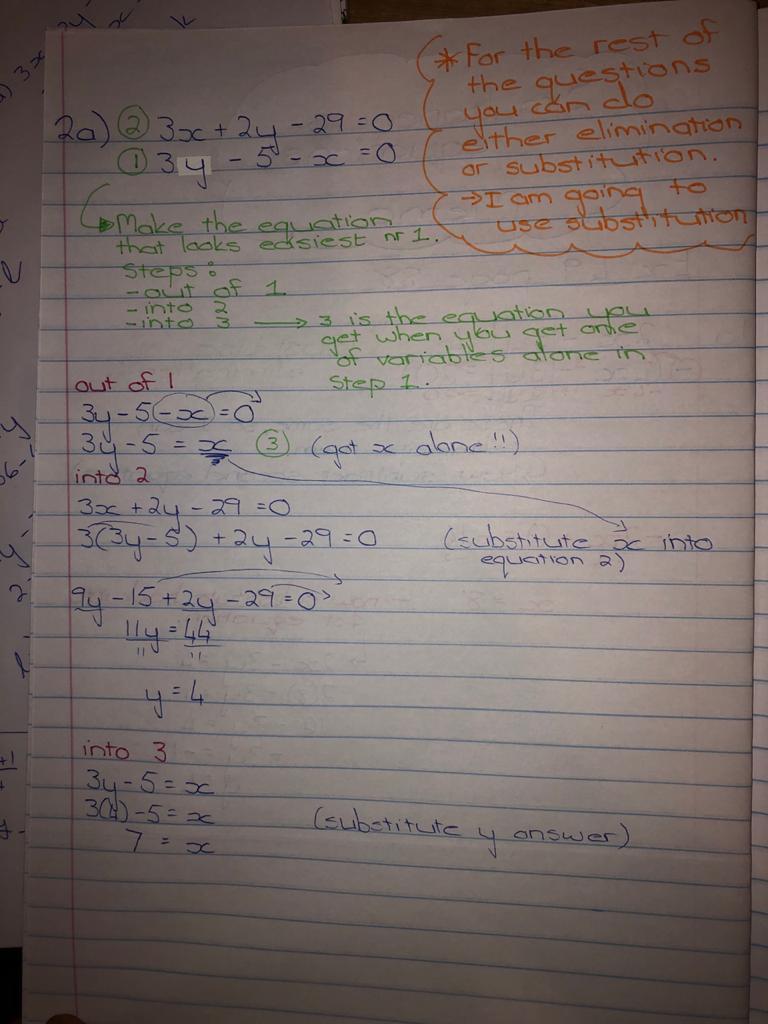 * For the rest of
the questions
you can do
either elimination
or substitution.
→ I am going to
use substitution
2a) ② 3x + 2y - 29 = 0
① 3y - 5 - x = 0
Make the equation
that looks eassiest nr 1.
Steps:
- out of 1
- into 2
- into 3 → 3 is the equation you
get when you get one
of variables alone in
step 1.
out of 1
3y - 5 - x = 0
3y - 5 = x ③ (got x alone!!)
into 2
3x + 2y - 29 = 0
3(3y - 5) + 2y - 29 = 0 (substitute x into
equation 2)
9y - 15 + 2y - 29 = 0
11y = 44
11 11
y = 4
into 3
3y - 5 = x
3(4) - 5 = x (substitute y answer)
7 = x